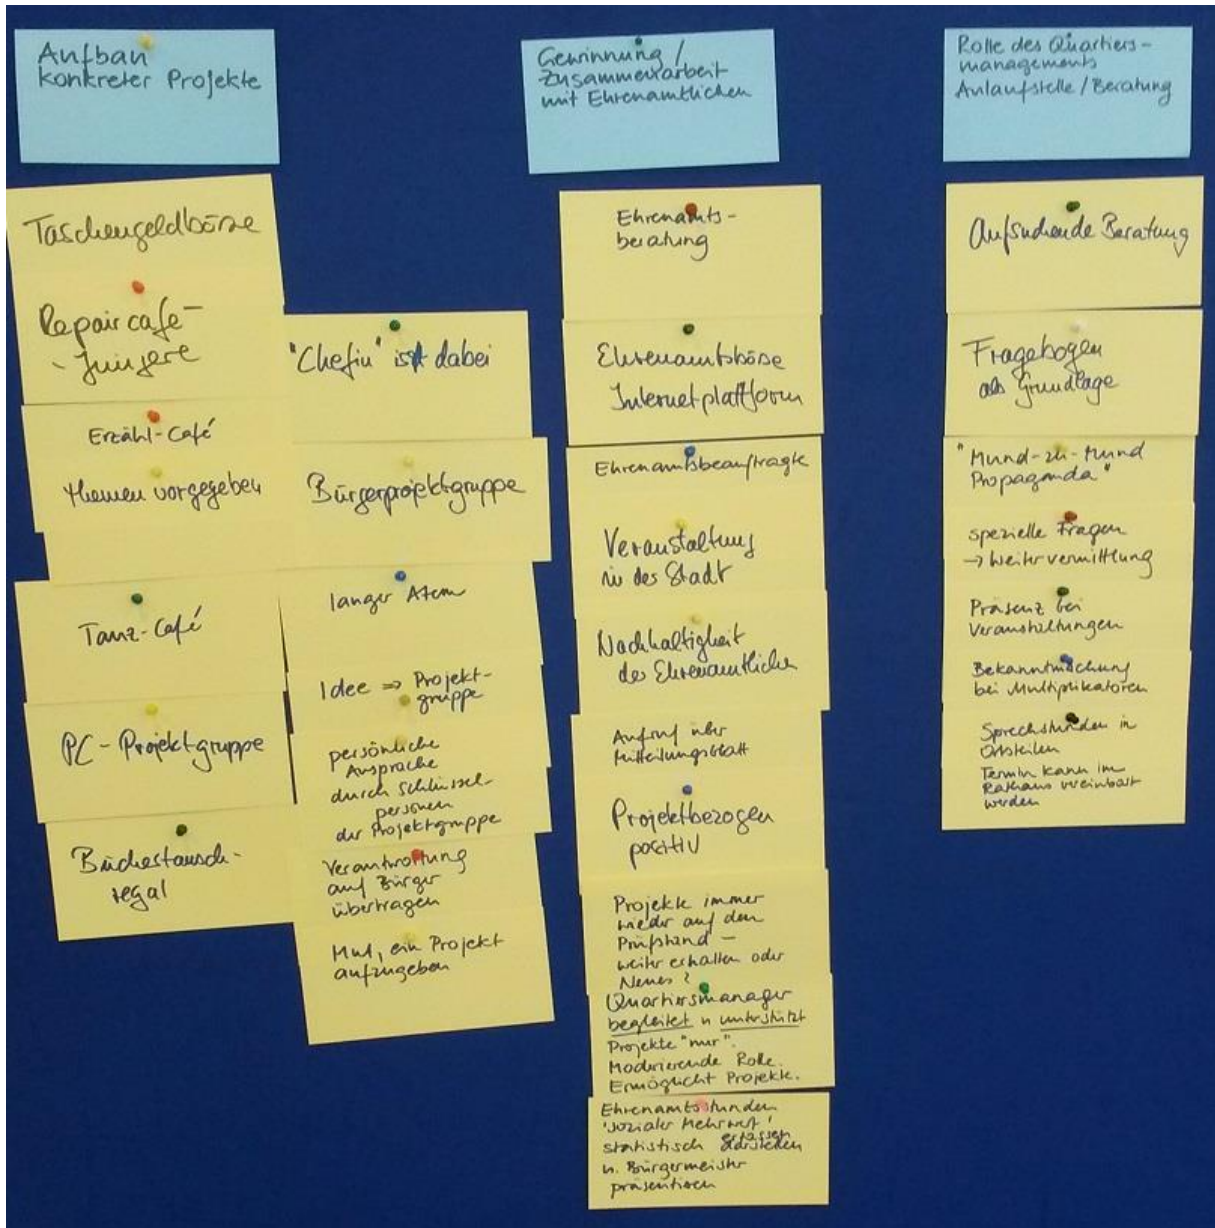 Aufbau
konkreter Projekte
Taschengeldbörse
Repaircafe –
- Jüngere
Erzähl-Café
Themen vorgegeben
Tanz-Café
PC - Projektgruppe
Büchertausch-
regal
"Chefin" ist dabei
Bürgerprojektgruppe
langer Atem
Idee ⇒ Projekt-
gruppe
persönliche
Ansprache
durch Schlüssel-
personen
der Projektgruppe
Verantwortung
auf Bürger
übertragen
Mut, ein Projekt
aufzugeben
Gewinnung /
Zusammenarbeit
mit Ehrenamtlichen
Ehrenamts-
beratung
Ehrenamtsbörse
Internetplattform
Ehrenamtsbeauftragte
Veranstaltung
in der Stadt
Nachhaltigkeit
des Ehrenamtliche
Aufruf über
Mitteilungsblatt
Projektbezogen
positiv
Projekte immer
wieder auf den
Prüfstand –
weiter erhalten oder
Neues?
Quartiersmanager
begleitet u unterstützt
Projekte "nur".
Moderierende Rolle.
Ermöglicht Projekte.
Ehrenamtsstunden
'sozialer Mehrwert'
statistisch erfassen
u. Bürgermeister
präsentieren
Rolle des Quartiers-
managements
Anlaufstelle / Beratung
Aufsuchende Beratung
Fragebogen
als Grundlage
"Mund-zu-Mund
Propaganda"
spezielle Fragen
→ Weitervermittlung
Präsenz bei
Veranstaltungen
Bekanntmachung
bei Multiplikatoren
Sprechstunden in
Ortsteilen
Termin kann im
Rathaus vereinbart
werden